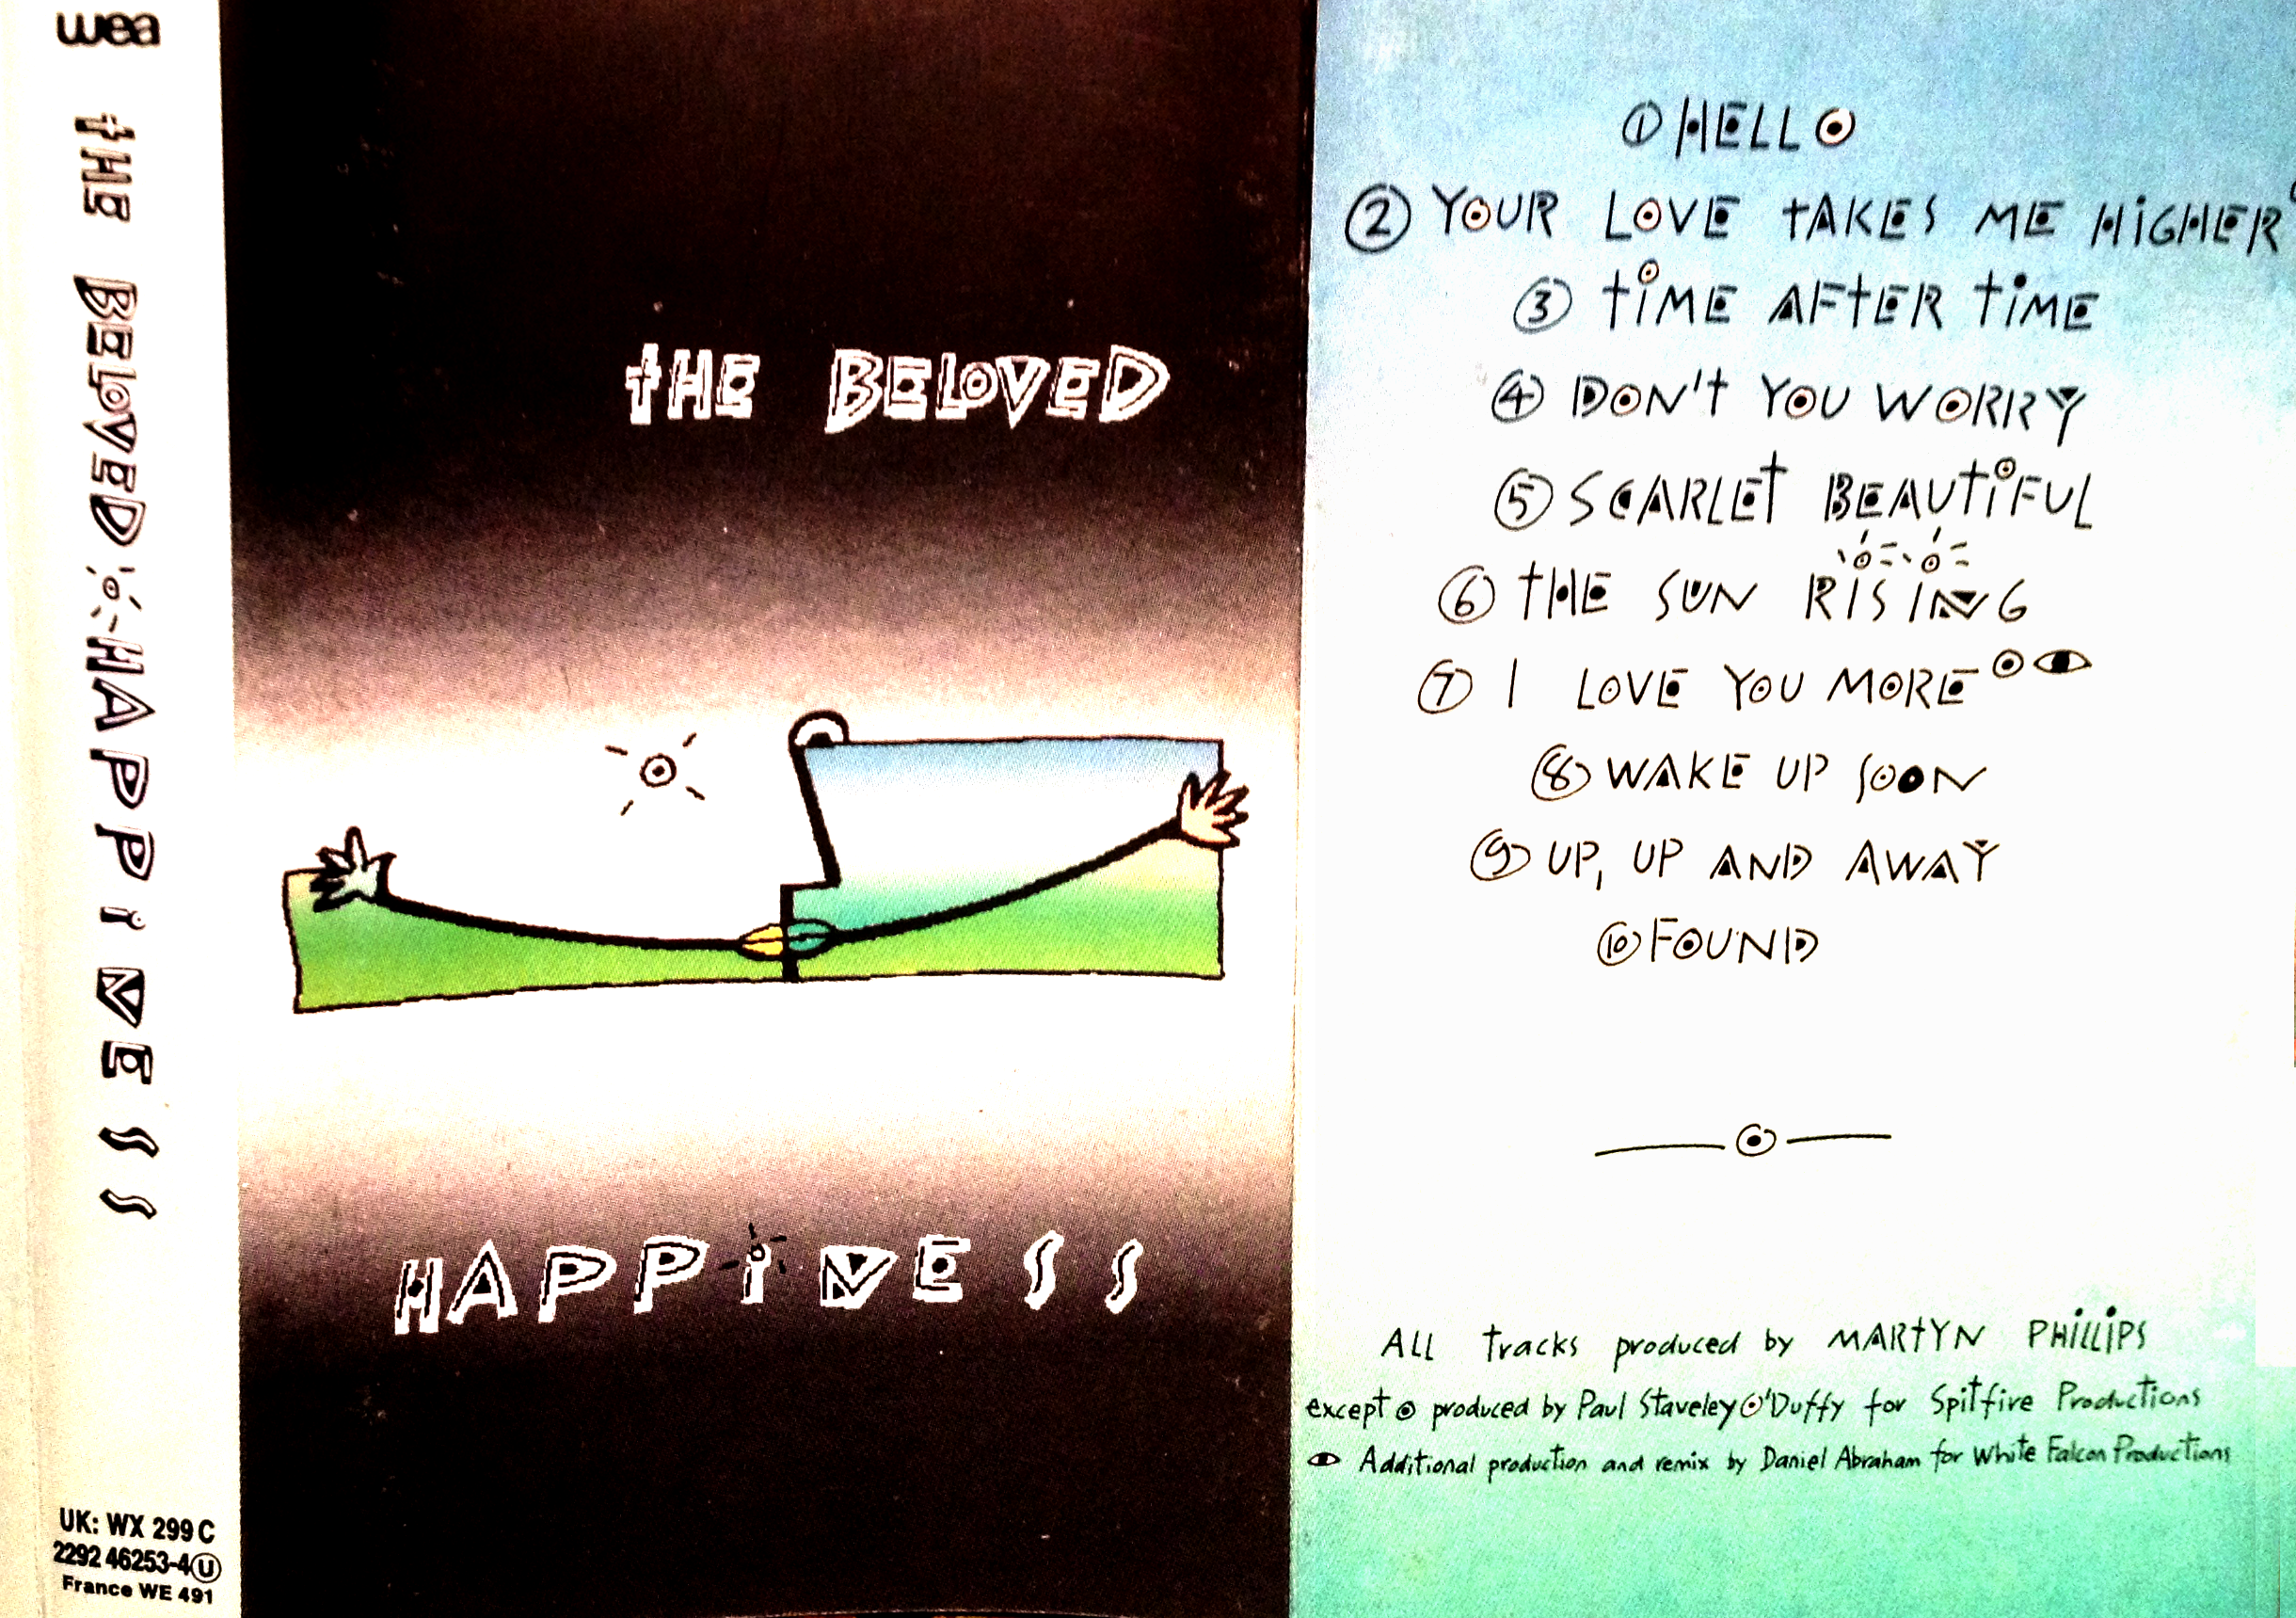 wea
tHE BELOVED HAPPiNESS
UK: WX 299 C
2292 46253-4 U
France WE 491
tHE BELOVED
HAPPiNESS
1 HELLO
2 YOUR LOVE tAKES ME HiGHER
3 tiME AFtER tiME
4 DON't YOU WORRY
5 SCARLEt BEAUtiFUL
6 tHE SUN RISING
7 I LOVE YOU MORE
8 WAKE UP SOON
9 UP, UP AND AWAY
10 FOUND
ALL tracks produced by MARtYN PHiLLiPS
except ⊙ produced by Paul Staveley O'Duffy for Spitfire Productions
Additional production and remix by Daniel Abraham for White Falcon Productions